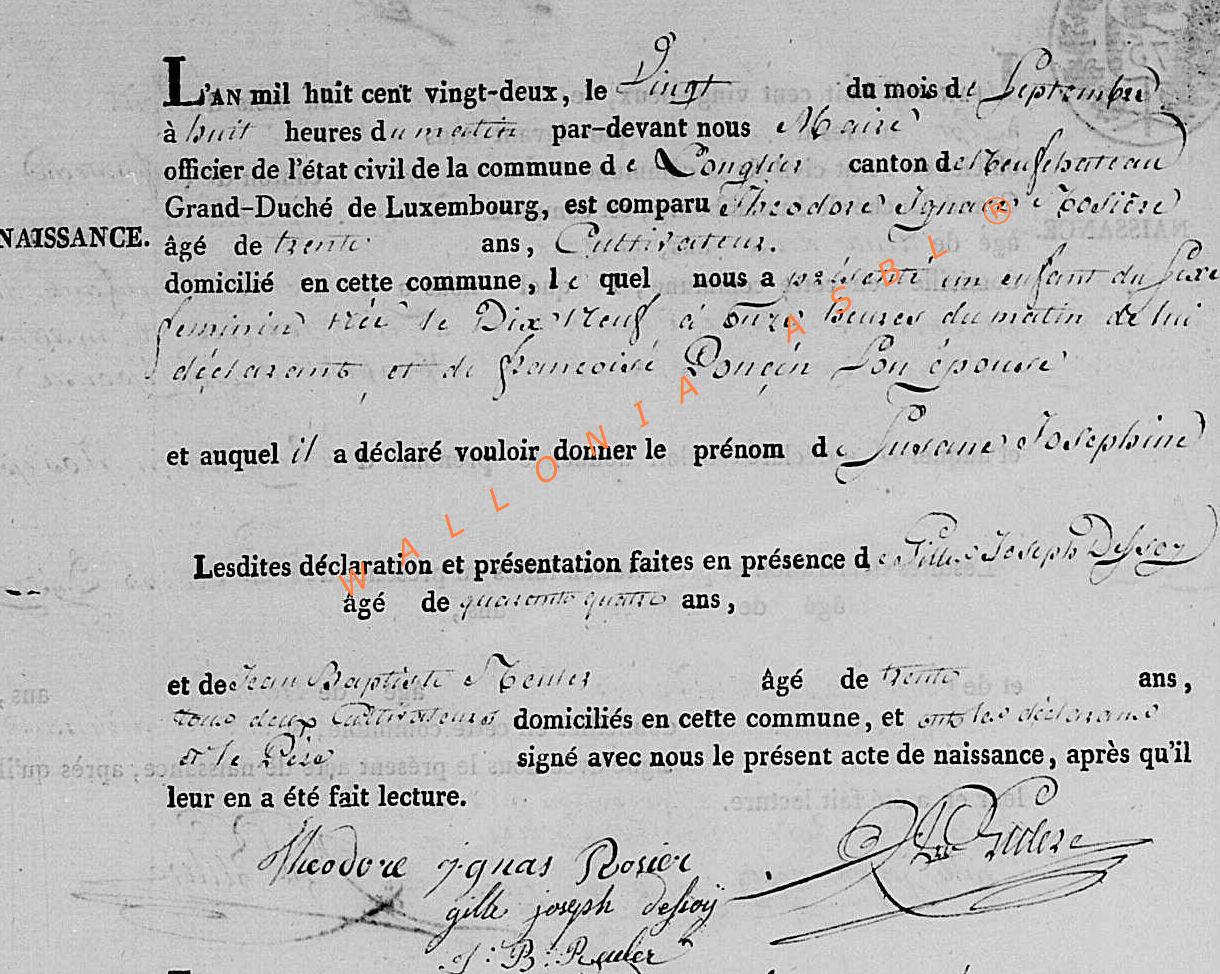 L'AN mil huit cent vingt-deux, le Vingt du mois de Septembre
à huit heures du matin par-devant nous Maire
officier de l'état civil de la commune de Longlier canton de Neufchateau
Grand-Duché de Luxembourg, est comparu Theodore Ignace Rosière
NAISSANCE.
âgé de trente ans, Cultivateur.
domicilié en cette commune, le quel nous a présenté un enfant du sexe
feminin née le Dix Neuf à onze heures du matin de lui
déclarant et de francoise Ponçin Son épouse
et auquel il a déclaré vouloir donner le prénom de Susane Josephine
Lesdites déclaration et présentation faites en présence de Gille Joseph Dessoy
âgé de quarante quatre ans,
et de Jean Baptiste âgé de trente ans,
tous deux Cultivateurs domiciliés en cette commune, et ont les déclarans
et le Père signé avec nous le présent acte de naissance, après qu'il
leur en a été fait lecture.
Theodore ignas Rosier
gille joseph dessoÿ
J: B:
WALLONIA ASBL ®